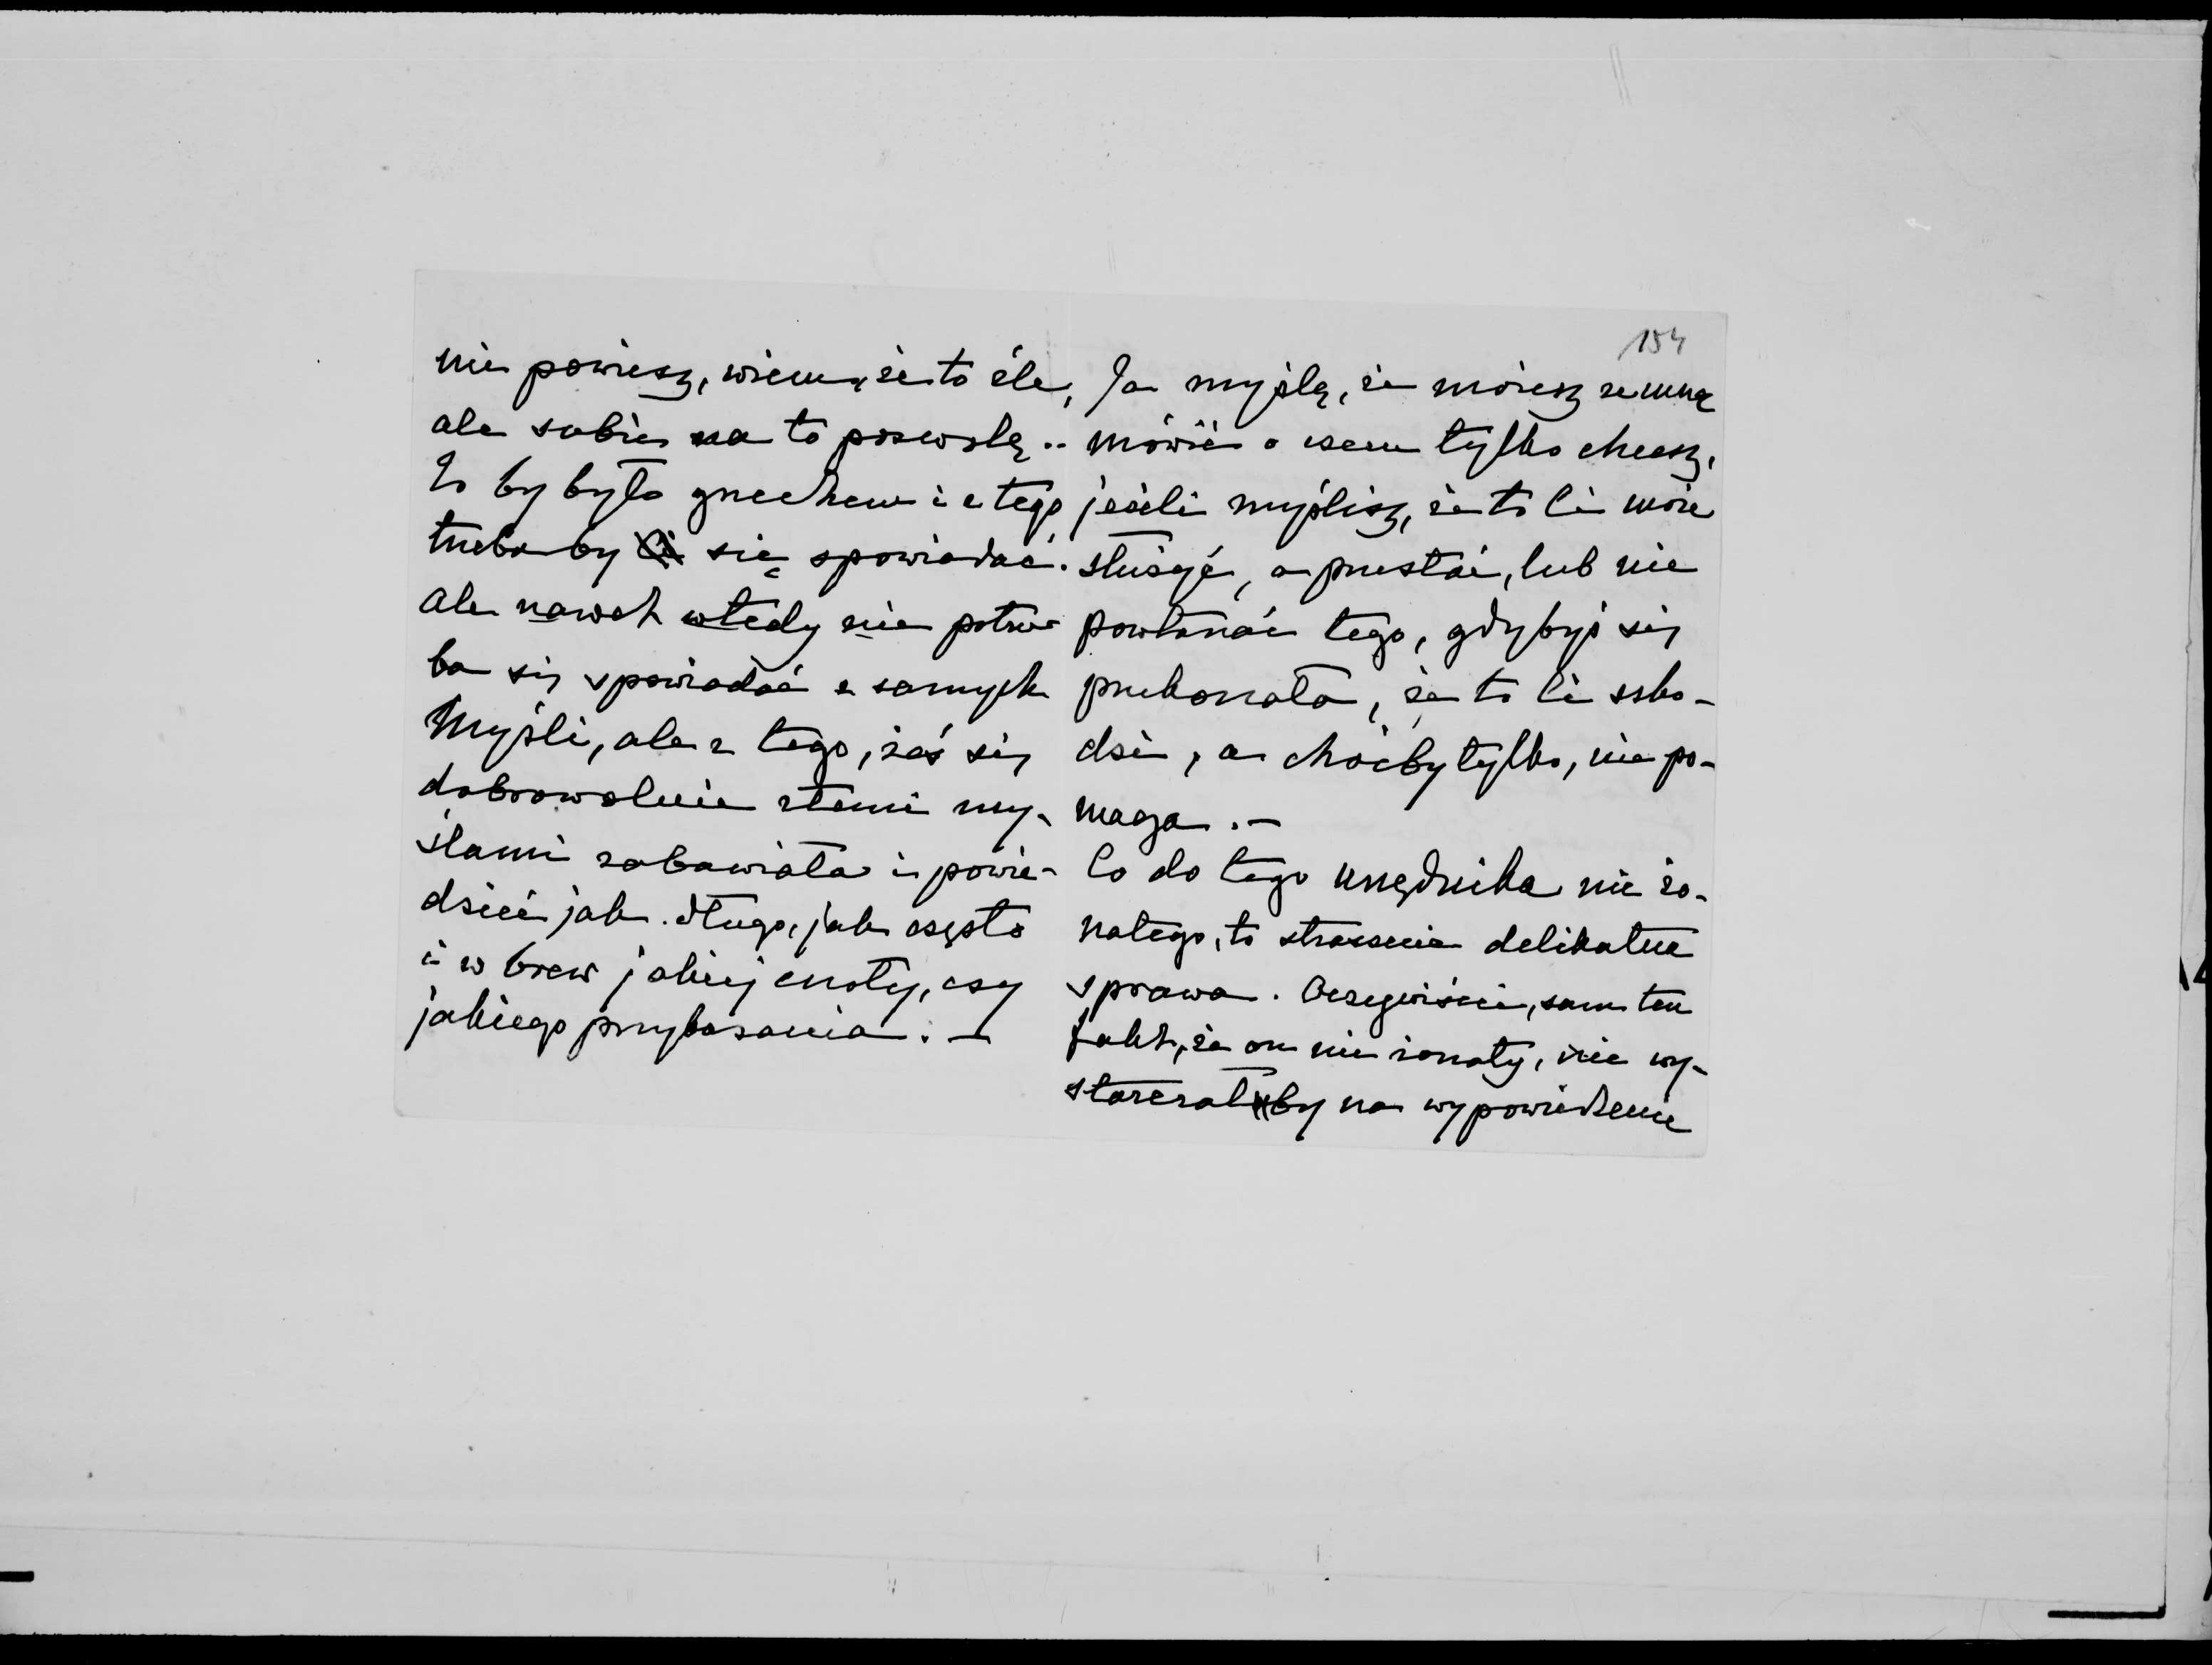 nie powiesz, wiem, że to źle,
ale sobie na to pozwolę..
To by było grzechem i z tego
trzeba by się spowiadać.
ale nawet wtedy nie potrze
ba się spowiadać z samych
myśli, ale z tego, żeś się
dobrowolnie złemi my-
ślami zabawiała i powie-
dzieć jak długo, jak często
i w brew jakiej cnoty, czy
jakiego przykazania. —
154
Ja myślę, że możesz ze mną
mówić o czem tylko chcesz,
jeżeli myślisz, że to Ci może
służyć, a przestać, lub nie
powtarzać tego, gdybyś się
przekonała, że to Ci szko-
dzi, a choćby tylko, nie po-
maga. —
Co do tego urzędnika nie żo-
natego, to strasznie delikatna
sprawa. Oczywiście, sam ten
fakt, że on nie żonaty, nie wy-
starczałby na wypowiedzenie